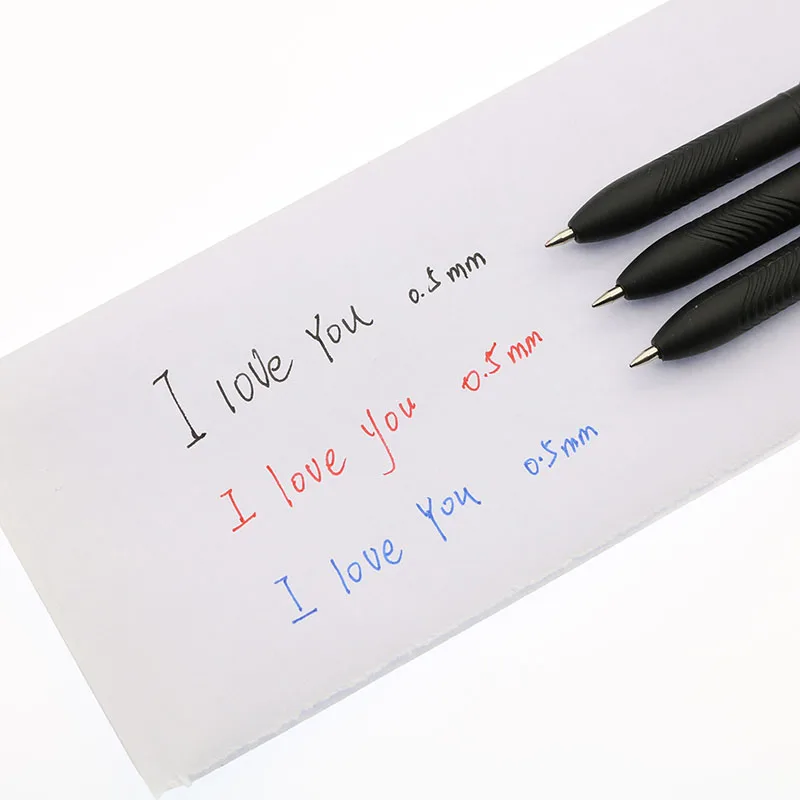 I love you 0.5mm
I love you 0.5mm
I love you 0.5mm